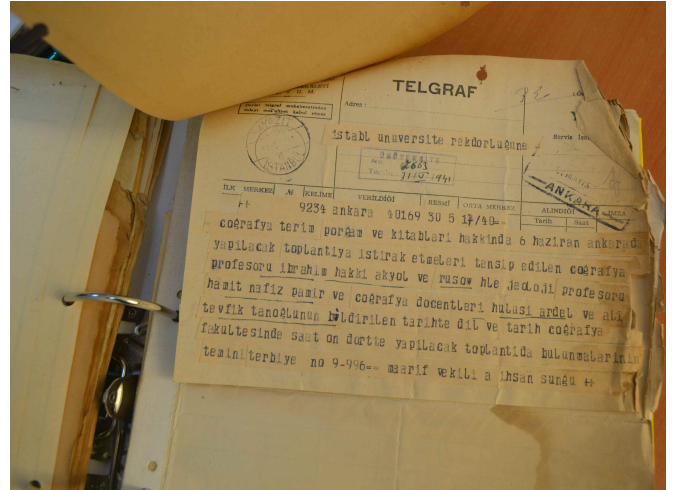 TELGRAF
Adres :
istabl unuversite rekdorluğune
ÜNİVERSİTE
No. 2603
1941
ANKARA
İLK MERKEZ № KELİME VERİLDİĞİ RESMÎ ORTA MERKEZ ALINDIĞI İMZA
Tarih Saat
++ 9234 ankara 40169 30 5 17/40=
coğrafya terim porğam ve kitablari hakkinda 6 haziran ankarada
yapilacak toplantiya istirak etmeleri tensip edilen coğrafya
profesoru ibrahim hakki akyol ve rusow hle jeoloji profesoru
hamit nafiz pamir ve coğrafya docentleri hulusi ardel ve ali
tevfik tanoğlunun bildirilen tarihte dil ve tarih coğrafya
fakultesinde saat on dortte yapilacak toplantida bulunmalarinin
temini terbiye no 9-996== maarif vekili a ihsan sungu ++